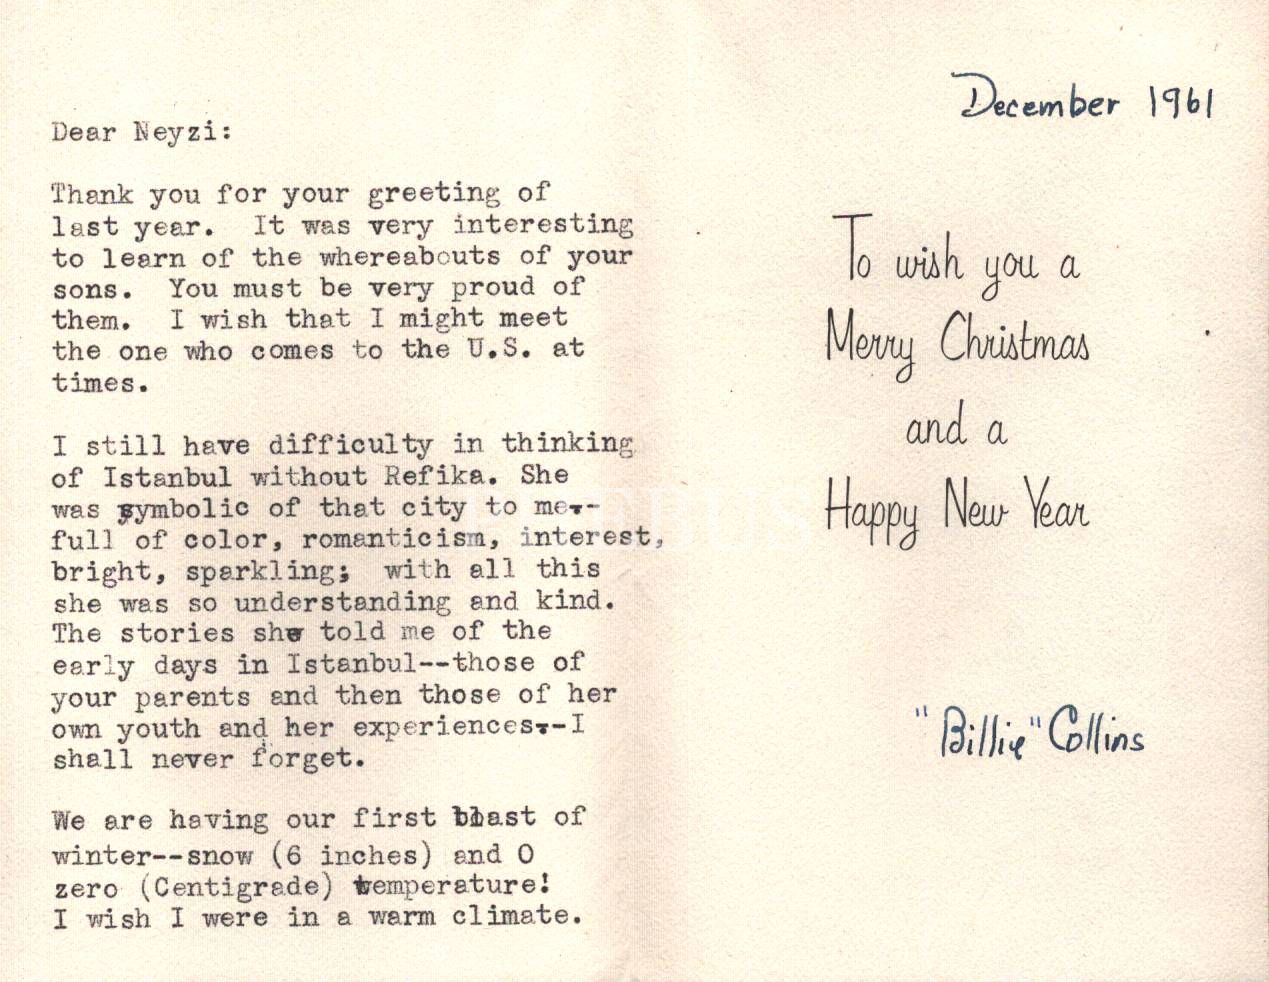 Dear Neyzi:
Thank you for your greeting of
last year. It was very interesting
to learn of the whereabouts of your
sons. You must be very proud of
them. I wish that I might meet
the one who comes to the U.S. at
times.
I still have difficulty in thinking
of Istanbul without Refika. She
was symbolic of that city to me--
full of color, romanticism, interest,
bright, sparkling; with all this
she was so understanding and kind.
The stories she told me of the
early days in Istanbul--those of
your parents and then those of her
own youth and her experiences--I
shall never forget.
We are having our first blast of
winter--snow (6 inches) and 0
zero (Centigrade) temperature!
I wish I were in a warm climate.
December 1961
To wish you a
Merry Christmas
and a
Happy New Year
"Billie" Collins